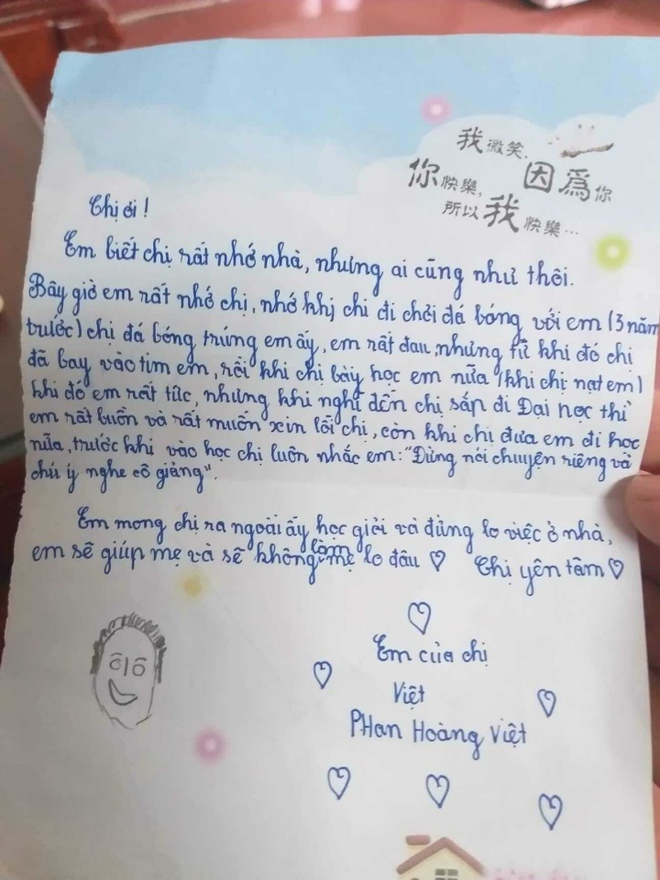 我微笑,
因為你
你快樂,
所以我快樂...
Chị ơi!
Em biết chị rất nhớ nhà, nhưng ai cũng như thôi.
Bây giờ em rất nhớ chị, nhớ khị chi đi chơi đá bóng với em (3 năm
trước) chị đá bóng trúng em ấy, em rất đau, nhưng từ khi đó chị
đã bay vào tim em, rồi khi chị bày học em nữa (khi chị nạt em)
khi đó em rất tức, nhưng khi nghĩ đến chị sắp đi Đại học thì
em rất buồn và rất muốn xin lỗi chị, còn khi chị đưa em đi học
nữa, trước khi vào học chị luôn nhắc em: "Đừng nói chuyện riêng và
chú ý nghe cô giảng".
Em mong chị ra ngoài ấy học giỏi và đừng lo việc ở nhà,
em sẽ giúp mẹ và sẽ không làm mẹ lo đâu ♡ Chị yên tâm ♡
Em của chị
Việt
PHan Hoàng Việt